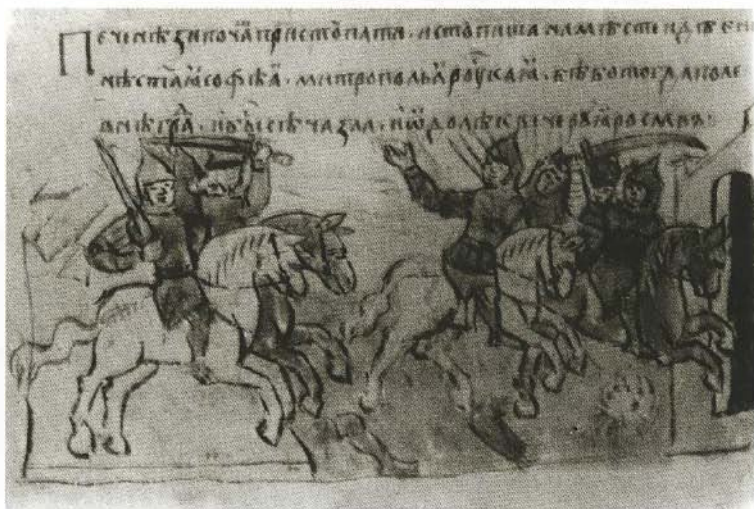 Печенѣзи поча пристꙋпати . истꙋпиша намѣсте идѣ
нѣ стаꙗ софиꙗ . митропольꙗ роускаꙗ . бѣ бо тогда поле
внѣ гра . и бы сѣча зла . и ѿдолѣ к вечерꙋ ꙗрославъ